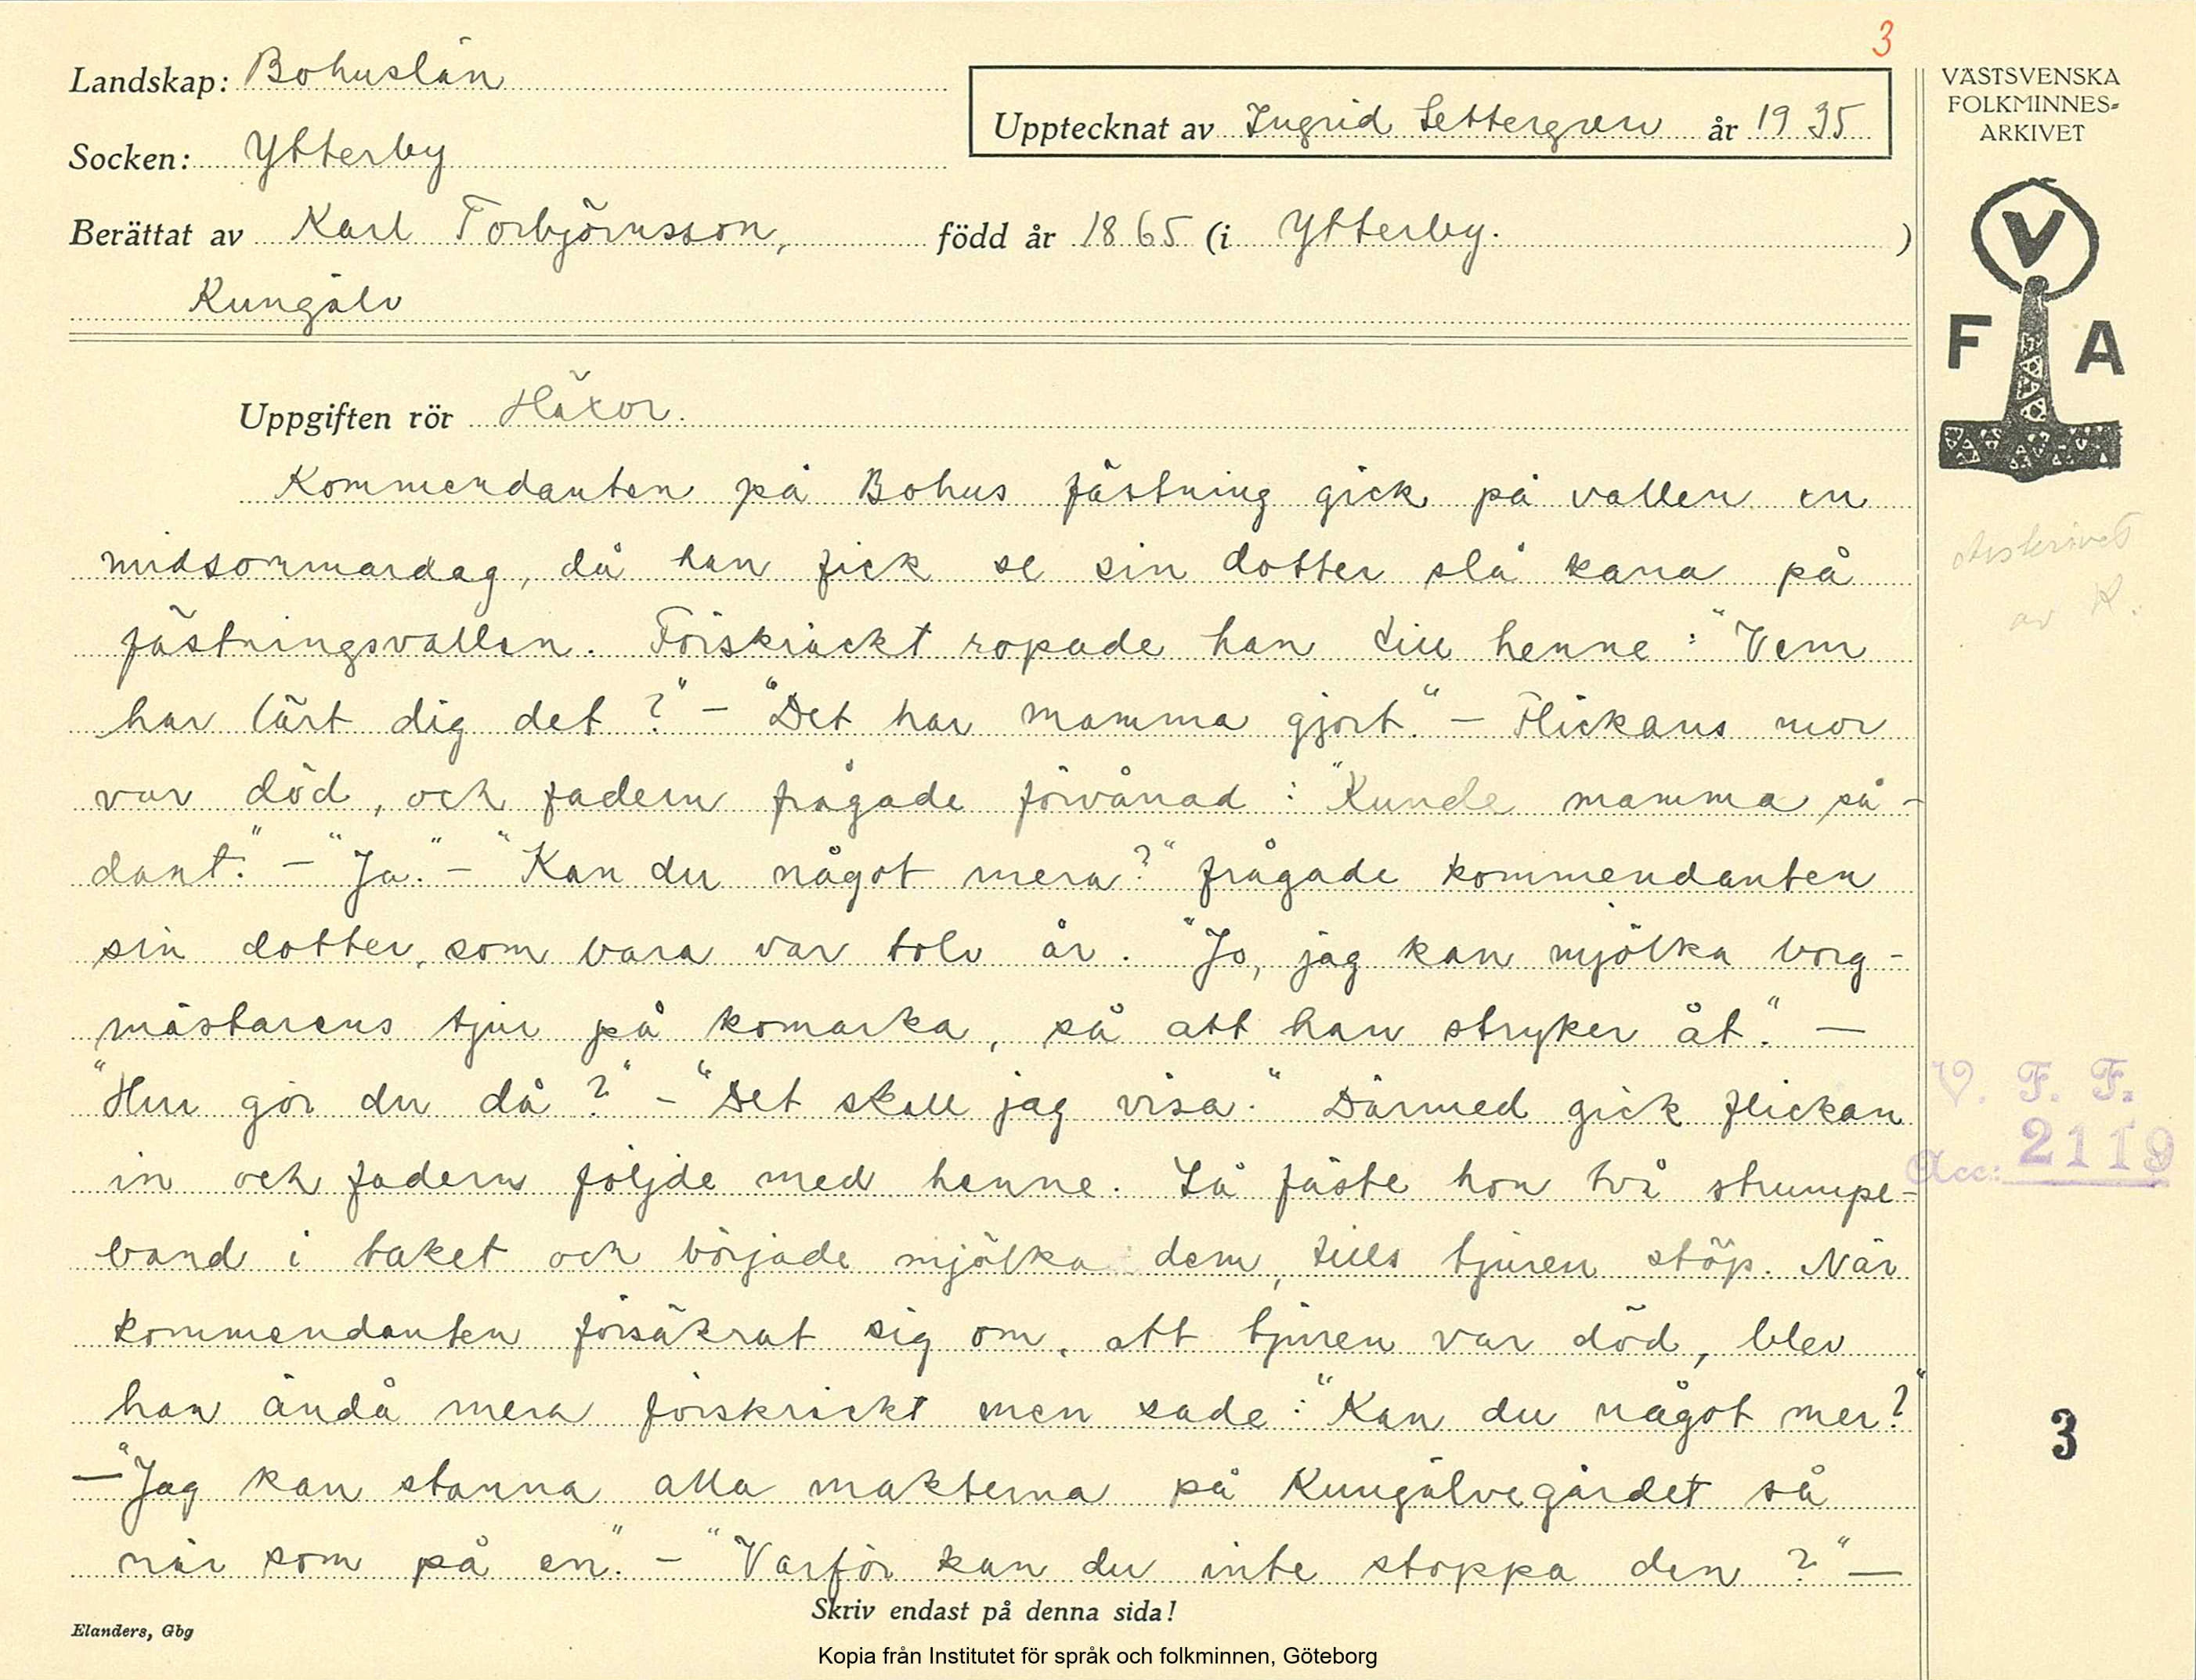 3
Landskap: Bohuslän
Upptecknat av Ingrid Settergren år 1935
Socken: Ytterby
Berättat av Karl Torbjörnsson, född år 1865 (i Ytterby. )
Kungälv
VÄSTSVENSKA
FOLKMINNES-
ARKIVET
V
F A
Uppgiften rör Häxor.
Kommendanten på Bohus fästning gick på vallen en
midsommardag, då han fick se sin dotter slå kana på
fästningsvallen. Förskräckt ropade han till henne: "Vem
har lärt dig det?" – "Det har mamma gjort." – Flickans mor
var död, och fadern frågade förvånad: "Kunde mamma så-
dant." – "Ja." – "Kan du något mera?" frågade kommendanten
sin dotter, som bara var tolv år. "Jo, jag kan mjölka borg-
mästarens tjur på komarka, så att han stryker åt." –
"Hur gör du då?" – "Det skall jag visa." Därmed gick flickan
in och fadern följde med henne. Så fäste hon två strumpe-
band i taket och började mjölka dem, tills tjuren stöp. När
kommendanten försäkrat sig om, att tjuren var död, blev
han ändå mera förskräckt men sade: "Kan du något mer?"
– "Jag kan stanna alla makterna på Kungälvegärdet så
när som på en." – "Varför kan du inte stoppa den?" –
Avskrivet
av R.
V. F. F.
Acc: 2119
3
Skriv endast på denna sida!
Elanders, Gbg
Kopia från Institutet för språk och folkminnen, Göteborg